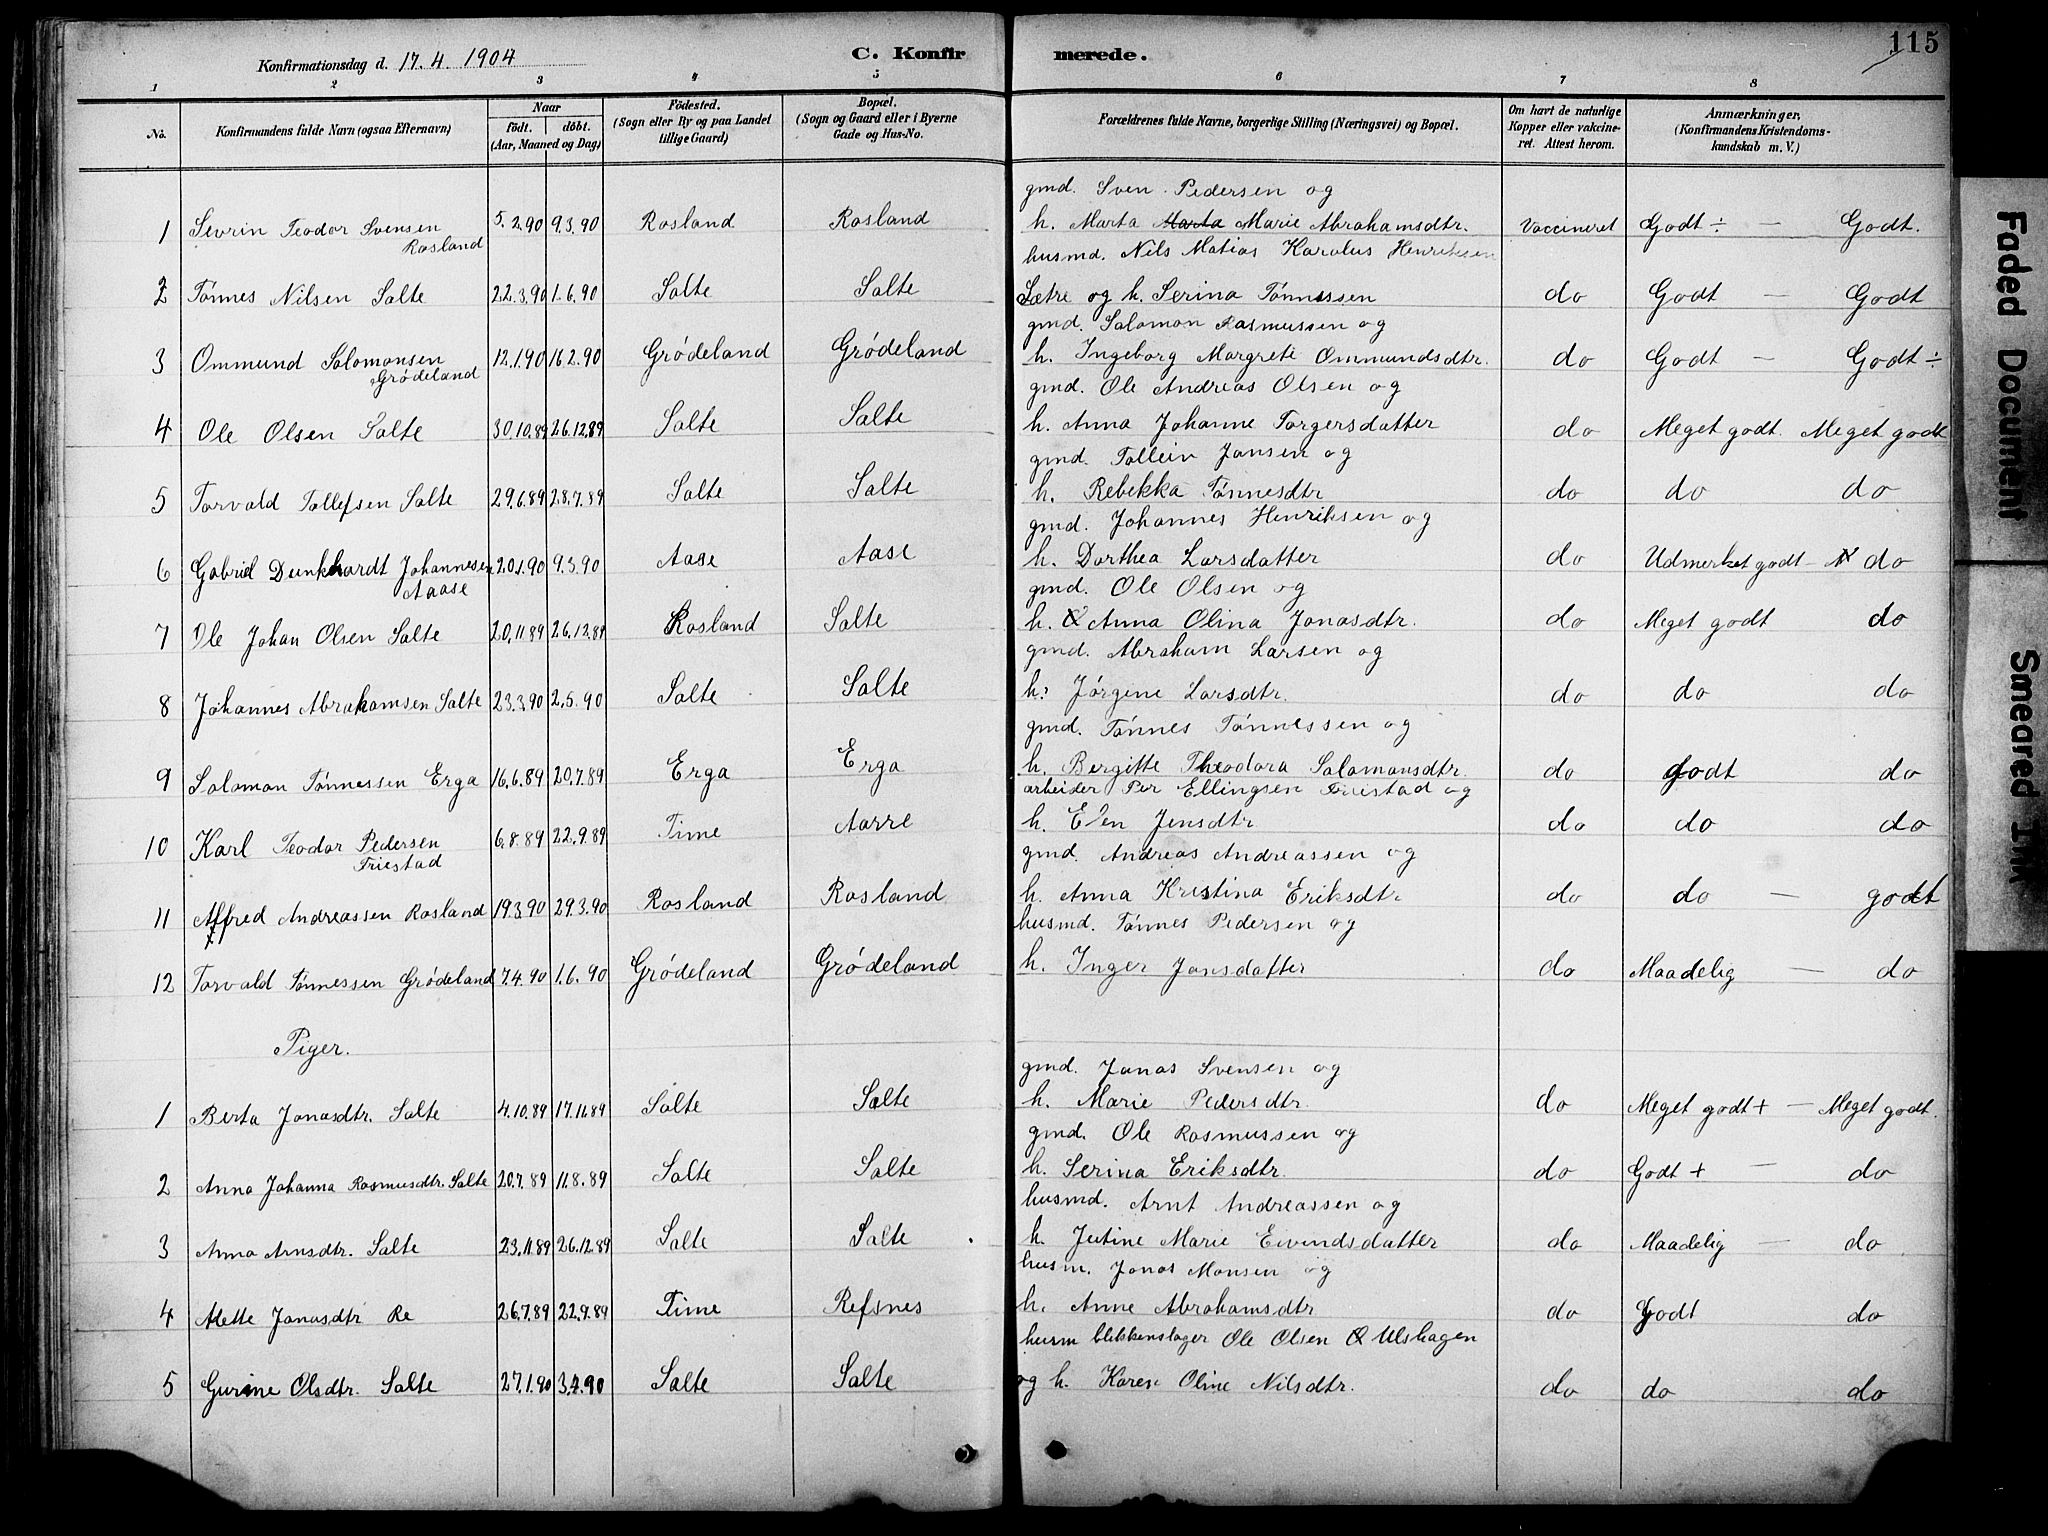 115
Konfirmationsdag d. 17. 4. 1904
C. Konfirmerede.
1 2 3 4 5 6 7 8
No. Konfirmandens fulde Navn (ogsaa Efternavn) Naar födt. döbt. (Aar, Maaned og Dag) Födested. (Sogn eller By og paa Landet tillige Gaard) Bopæl. (Sogn og Gaard eller i Byerne Gade og Hus-No. Forældrenes fulde Navne, borgerlige Stilling (Næringsvei) og Bopæl. Om havt de naturlige Kopper eller vakcineret. Attest herom. Anmærkninger. (Konfirmandens Kristendomskundskab m. V.)
gmd. Sven Pedersen og
1 Sevrin Teodor Svensen 5.2.90 9.3.90 Rosland Rosland h. Marta Marta Marie Abrahamsdtr. Vaccineret Godt ÷ — Godt.
Rosland
husmd. Nils Matias Karolus Henriksen
2 Tønnes Nilsen Salte 22.3.90 1.6.90 Salte Salte Sætre og h. Serina Tønnessen do Godt — Godt
gmd. Salomon Rasmussen og
3 Ommund Salomonsen 12.1.90 16.2.90 Grødeland Grødeland h. Ingeborg Margrete Ommundsdtr. do Godt — Godt ÷
Grødeland
gmd. Ole Andreas Olsen og
4 Ole Olsen Salte 30.10.89 26.12.89 Salte Salte h. Anna Johanne Torgersdatter do Meget godt. Meget godt
gmd. Tollein Jansen og
5 Torvald Tollefsen Salte 29.6.89 28.7.89 Salte Salte h. Rebekka Tønnesdtr do do do
gmd. Johannes Henriksen og
6 Gabriel Dunkhardt Johannesen 20.1.90 9.3.90 Aase Aase h. Dorthea Larsdatter do Udmerket godt — do
Aase
gmd. Ole Olsen og
7 Ole Johan Olsen Salte 20.11.89 26.12.89 Rosland Salte h. Anna Olina Jonasdtr. do Meget godt do
gmd. Abraham Larsen og
8 Johannes Abrahamsen Salte 23.3.90 2.5.90 Salte Salte h. Jørgine Larsdtr. do do do
gmd. Tønnes Tønnessen og
9 Salomon Tønnessen Erga 16.6.89 20.7.89 Erga Erga h. Bergitte Theodora Salomonsdtr. do godt do
arbeider Per Ellingsen Friestad og
10 Karl Teodor Pedersen 6.8.89 22.9.89 Time Aarre h. Elen Jensdtr do do do
Friestad
gmd. Andreas Andreassen og
11 Alfred Andreassen Rosland 19.3.90 29.3.90 Rosland Rosland h. Anna Kristina Eriksdtr. do do — godt
husmd. Tønnes Pedersen og
12 Torvald Tønnessen Grødeland 7.4.90 1.6.90 Grødeland Grødeland h. Inger Jansdatter do Maadelig — do
Piger.
gmd. Jonas Svensen og
1 Berta Jonasdtr. Salte 4.10.89 17.11.89 Salte Salte h. Marie Pedersdtr. do Meget godt + — Meget godt.
gmd. Ole Rasmussen og
2 Anna Johanna Rasmusdtr. Salte 20.7.89 11.8.89 Salte Salte h. Serina Eriksdtr. do Godt + — do
husmd. Arnt Andreassen og
3 Anna Arnsdtr. Salte 23.11.89 26.12.89 Salte Salte h. Jutine Marie Eivindsdatter do Maadelig — do
husm. Jonas Monsen og
4 Mette Jonasdtr Re 26.7.89 22.9.89 Time Refsnes h. Anne Abrahamsdtr do Godt do
husm blikkenslager Ole Olsen Ulshagen
5 Gurine Olsdtr. Salte 27.1.90 3.4.90 Salte Salte og h. Karen Oline Nilsdtr. do do do
Faded Document
Smeared Ink